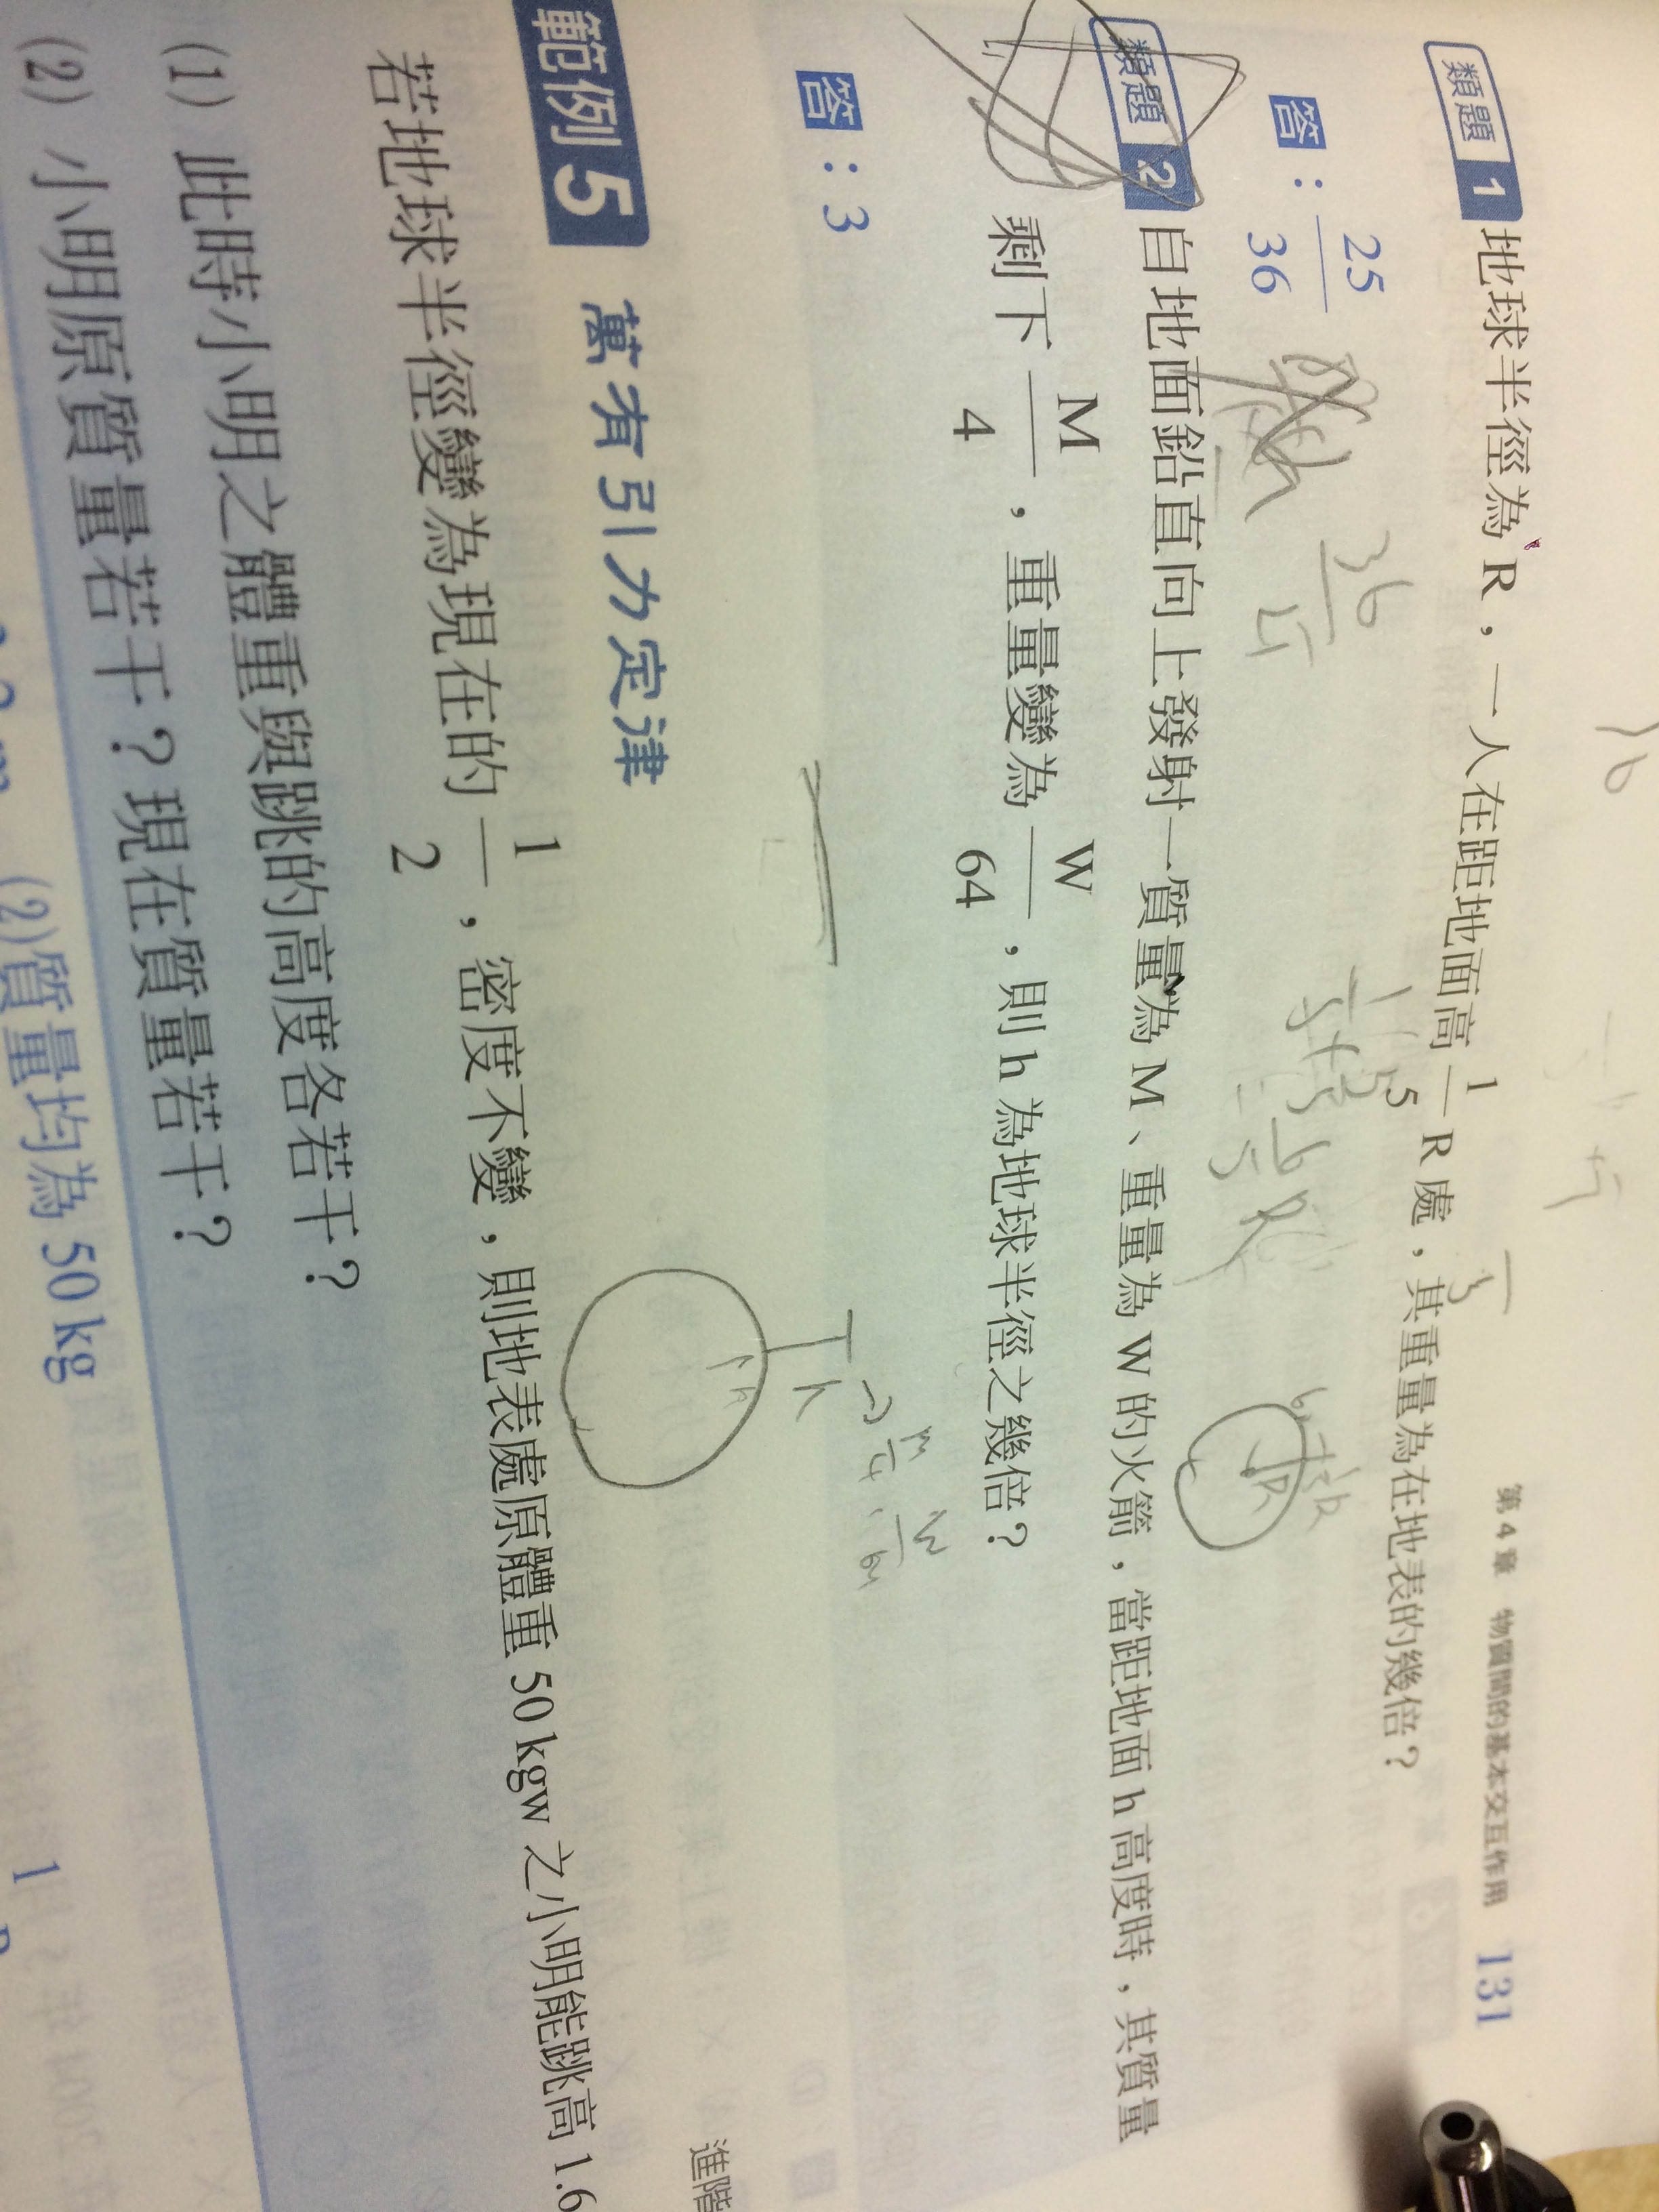 第4章 物質間的基本交互作用 131
類題 1 地球半徑為 R，一人在距地面高 1/5 R 處，其重量為在地表的幾倍？
答：25/36
36
類題 2 自地面鉛直向上發射一質量為 M、重量為 W 的火箭，當距地面 h 高度時，其質量
剩下 M/4，重量變為 W/64，則 h 為地球半徑之幾倍？
答：3
h
進階
範例 5 萬有引力定律
若地球半徑變為現在的 1/2，密度不變，則地表處原體重 50 kgw 之小明能跳高 1.6
(1) 此時小明之體重與跳的高度各若干？
(2) 小明原質量若干？現在質量若干？
(2)質量均為 50 kg